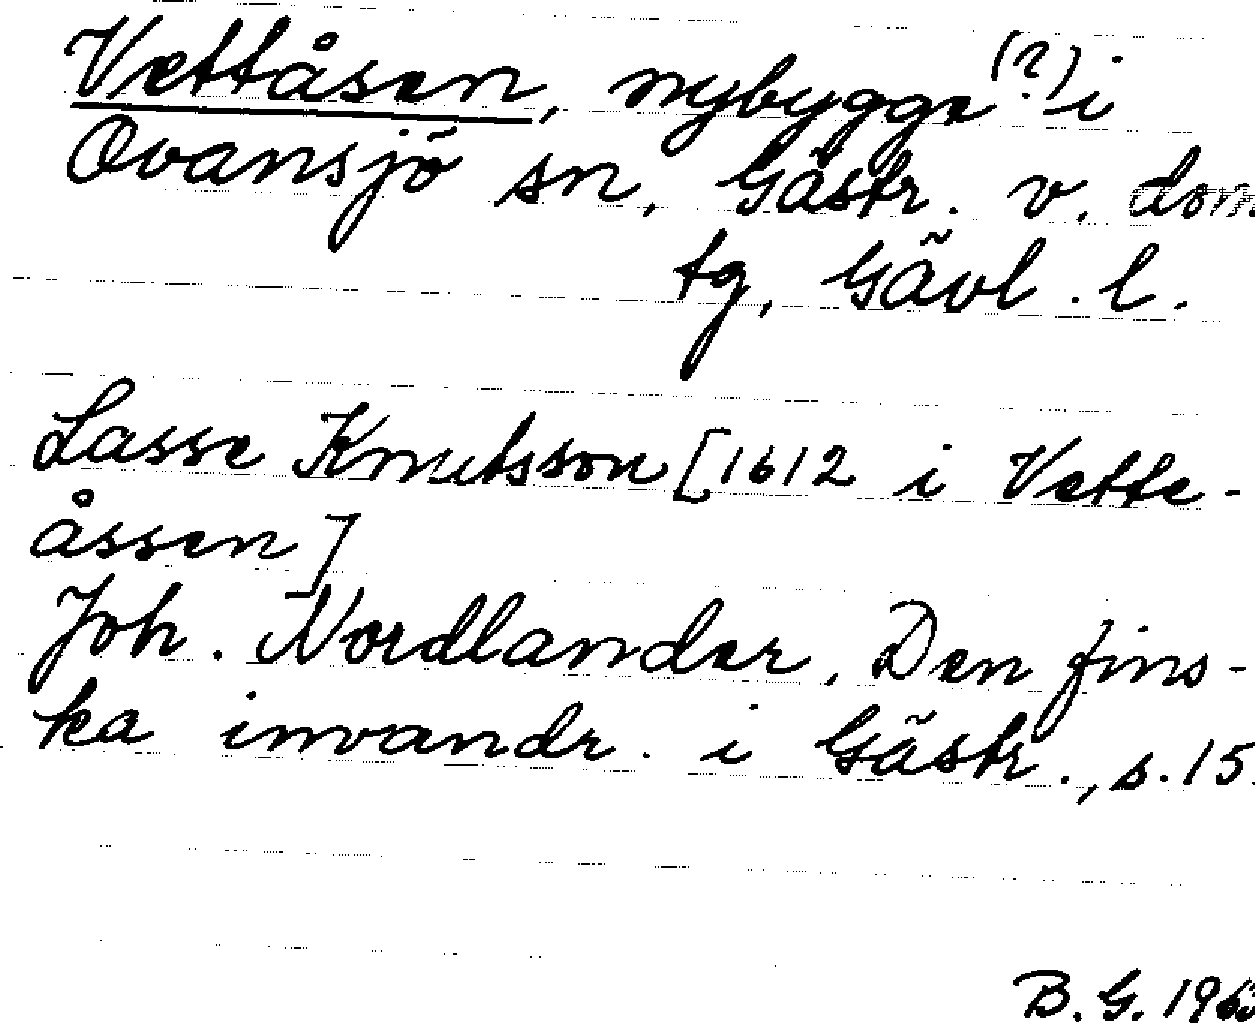 Vettåsen, nybygge (?) i
Ovansjö sn, Gästr. v. dom
tg, Gävl. l.
Lasse Knutsson [1612 i Vette-
åssen]
Joh. Nordlander, Den fins-
ka invandr. i Gästr., s. 15.
B. G.